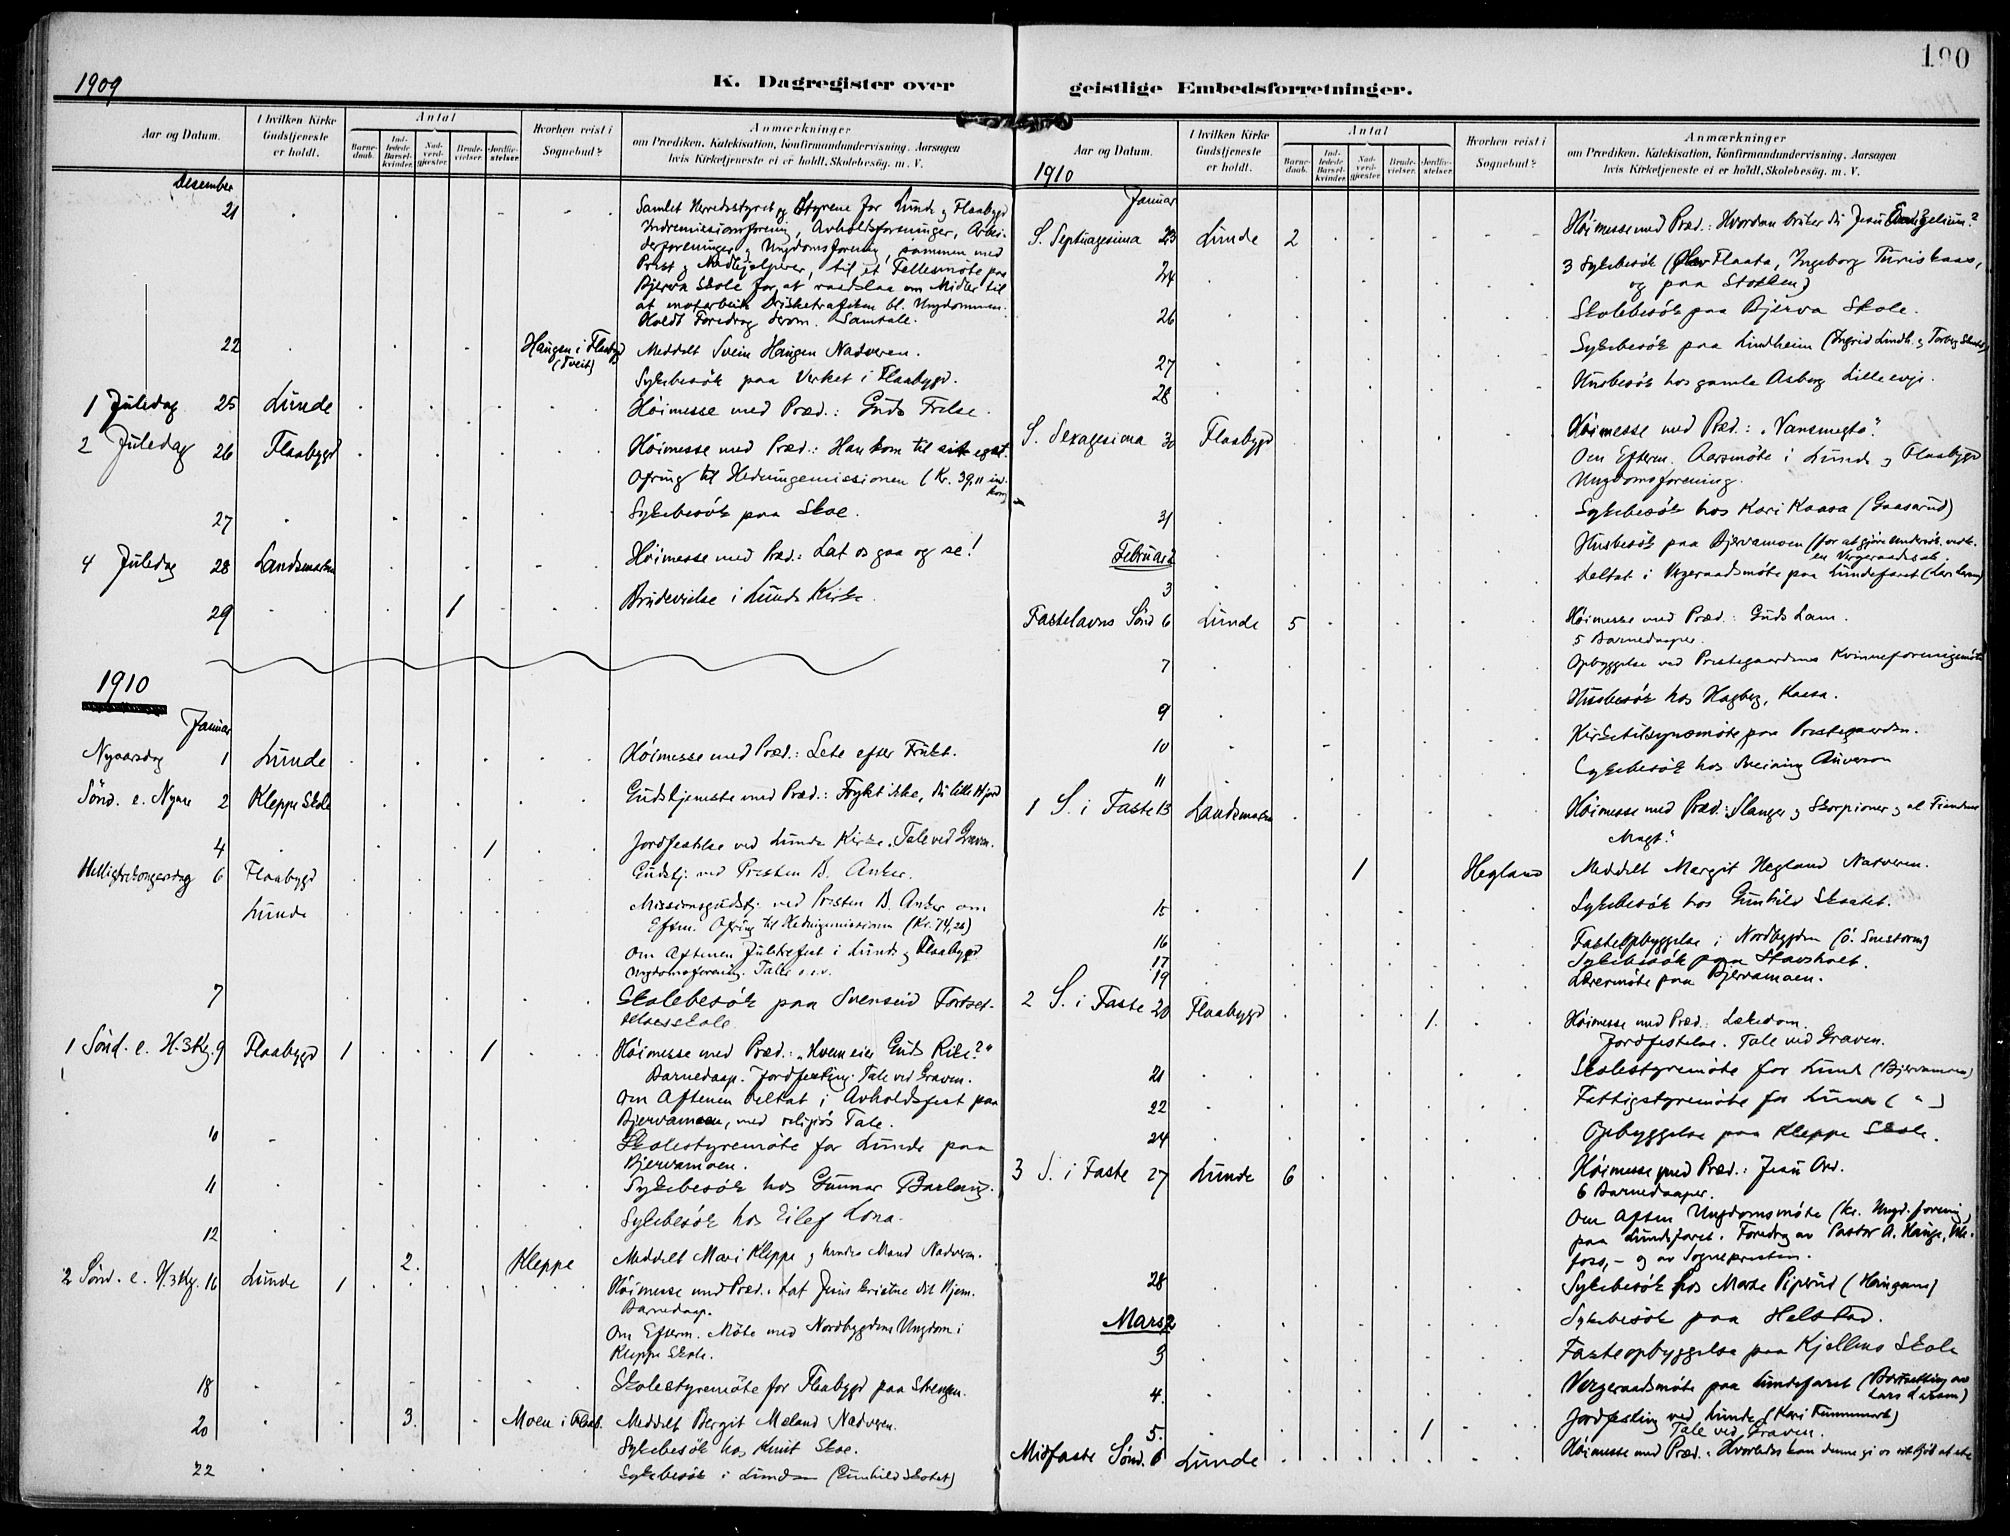 1909
K. Dagregister over
Aar og Datum.
I hvilken Kirke Gudstjeneste er holdt.
Antal
Barnedaab.
Indledede Barselkvinder.
Nadverdgjester.
Brudevielser.
Jordfæstelser.
Hvorhen reist i Sognebud?
Anmærkninger
om Prædiken, Katekisation, Konfirmandundervisning, Aarsagen
hvis Kirketjeneste ei er holdt, Skolebesøg. m. V.
Desember
21 Samlet Herredsstyret og Styrene for Lunde og Flaabygd
Indremissionsforening, Avholdsforeninger, Arbei-
derforeninger og Ungdomsforening, sammen med
Prest og Medhjelpere, til et Fellesmöte paa
Bjerva Skole for at raadslaa om Midler til
at motarbeide Drikketrafiken bl. Ungdommen.
Holdt Foredrag derom. Samtale.
22 Haugen i Flaabygd (Tveit) Meddelt Svein Haugen Nadveren.
Sykebesök paa Verket i Flaabygd.
1 Juledag 25 Lunde Höimesse med Præd.: Guds Frelse.
2 Juledag 26 Flaabygd Höimesse med Præd.: Han kom til sit eget.
Ofring til Hedningemissionen (Kr. 39,11 indkom)
27 Sykebesök paa Skoe.
4 Juledag 28 Landsmarken Höimesse med Præd.: Lat os gaa og se!
29 1 Brudevielse i Lunde Kirke.
1910
Januar
Nyaarsdag 1 Lunde Höimesse med Præd.: Lete efter Frukt.
Sönd. e. Nyaar 2 Kleppe Skole Gudstjeneste med Præd.: Frykt ikke, du lille Hjord
4 1 Jordfestelse ved Lunde Kirke. Tale ved Graven.
Helligtrekongersdag 6 Flaabygd Gudstj. ved Presten B. Anker.
Lunde Missionsgudstj. ved Presten B. Anker om
Efterm. Ofring til Hedningemissionen (Kr. 74,26)
Om Aftenen Juletrefest i Lunde og Flaabygd
Ungdomsforening. Tale o.s.v.
7 Skolebesök paa Svenseid Fortset-
telsesskole.
1 Sönd. e. H.3Kg. 9 Flaabygd 1 1 Höimesse med Præd.: "Hvem eier Guds Rike?"
Barnedaap. Jordfesting. Tale ved Graven.
Om Aftenen deltat i Avholdsfest paa
Bjervamoen, med religiös Tale.
10 Skolestyremöte for Lunde paa
Bjervamoen.
11 Sykebesök hos Gunnar Barlaug.
12 Sykebesök hos Eilef Lona.
2. Kleppe Meddelt Mari Kleppe og hendes Mand Nadveren.
2 Sönd. e. H.3Kg. 16 Lunde 1 Höimesse med Præd.: Lat Jesus kristne dit Hjem.
Barnedaap.
Om Efterm. Möte med Nordbygdens Ungdom i
Kleppe Skole.
18 Skolestyremöte for Flaabygd paa Strengen.
20 3. Moen i Flaab. Meddelt Bergit Meland Nadveren.
Sykebesök hos Knut Skoe.
22 Sykebesök i Lunden (Gunhild Skotet)
geistlige Embedsforretninger.
190
Aar og Datum.
1910
I hvilken Kirke Gudstjeneste er holdt.
Antal
Barnedaab.
Indledede Barselkvinder.
Nadverdgjester.
Brudevielser.
Jordfæstelser.
Hvorhen reist i Sognebud?
Anmærkninger
om Prædiken, Katekisation, Konfirmandundervisning, Aarsagen
hvis Kirketjeneste ei er holdt, Skolebesøg. m. V.
Januar
S. Septuagesima 23 Lunde 2 Höimesse med Præd.: Hvordan bruker du Jesu Evangelium?
24 3 Sykebesök (Olav Flaata, Ingeborg Turiskaas,
og paa Stokken)
26 Skolebesök paa Bjerva Skole.
27 Sykebesök paa Lindheim (Ingrid Lindh. og
28 Husbesök hos gamle Asberg Lilleevje.
S. Sexagesima 30 Flaabygd Höimesse med Præd.: "Vansmegte".
Om Efterm. Aarsmöte i Lunde og Flaabygd
Ungdomsforening.
31 Sykebesök hos Kari Kaasa (Gaasarud)
Februar 2 Husbesök paa Bjervamoen (for at gjöre Undersök. vedk.
en Vergeraadssak.
3 Deltat i Vergeraadsmöte paa Lundefaret
Fastelavns Sönd 6 Lunde 5 Höimesse med Præd.: Guds Lam.
5 Barnedaaper.
7 Opbyggelse ved Prestegaardens Kvinneforeningsmöte
9 Husbesök hos Hagberg, Kaasa.
10 Kirketilsynsmöte paa Prestegaarden.
11 Sykebesök hos Sveinung
1 S. i Faste 13 Landsmarken Höimesse med Præd.: Slanger og Skorpioner og al Fiendens
Magt."
1 Hegland Meddelt Margit Hegland Nadveren.
15 Sykebesök hos Gunhild Skotet.
16 Fasteopbyggelse i Nordbygden (ö. Snestorm)
17 Sykebesök paa Stavsholt.
19 Lærermöte paa Bjervamoen.
2 S. i Faste 20 Flaabygd 1. Höimesse med Præd.: Lekedom.
Jordfestelse. Tale ved Graven.
21 Skolestyremöte for Lunde (Bjervamoen)
22 Fattigstyremöte for Lunde ( " )
24 Opbyggelse paa Kleppe Skole.
3 S. i Faste 27 Lunde 6 Höimesse med Præd.: Jesu Ord.
6 Barnedaaper.
Om Aften Ungdomsmöte (Kr. Ungd. forening)
paa Lundefaret. Foredrag av Pastor A. Hauge, Ule-
foss, – og av Sognepresten.
28 Sykebesök hos Marte Piperud (Haugen)
Mars 2 Sykebesök paa Helstad.
3 Fasteopbyggelse paa Kjellemo Skole
4. Vergeraadsmöte paa Lundefaret (Bortsetting av
Lars Larsen)
5. 1 Jordfesting ved Lunde (Kari
Tale ved Graven.
Midfaste Sönd. 6 Lunde Höimesse med Præd.: Hvorledes kan denne gi os sit Kjöt at ete